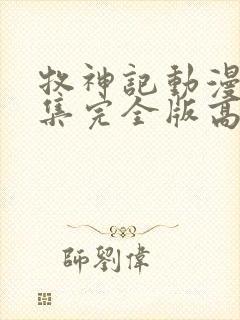 牧神記動漫
集完全版高
師劉偉